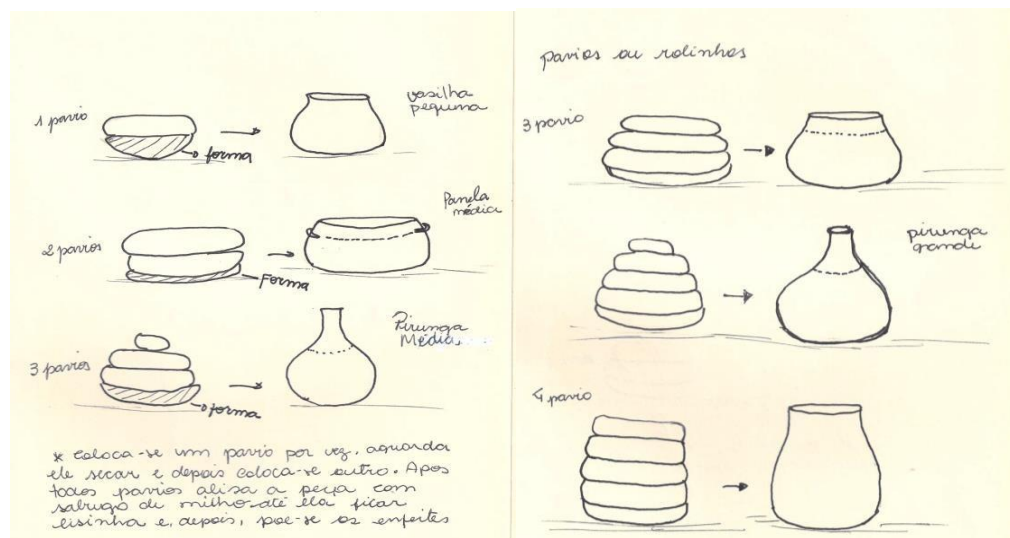 1 pavio
forma
vasilha
pequena
2 pavios
Forma
Panela
média
3 pavios
forma
Pirunga
Média
* coloca-se um pavio por vez, aguarda
ele secar e depois coloca-se outro. Apos
todos pavios alisa a peça com
sabugo de milho até ela ficar
lisinha e, depois, poe-se os enfeites
pavios ou rolinhos
3 pavio
pirunga
grande
4 pavio